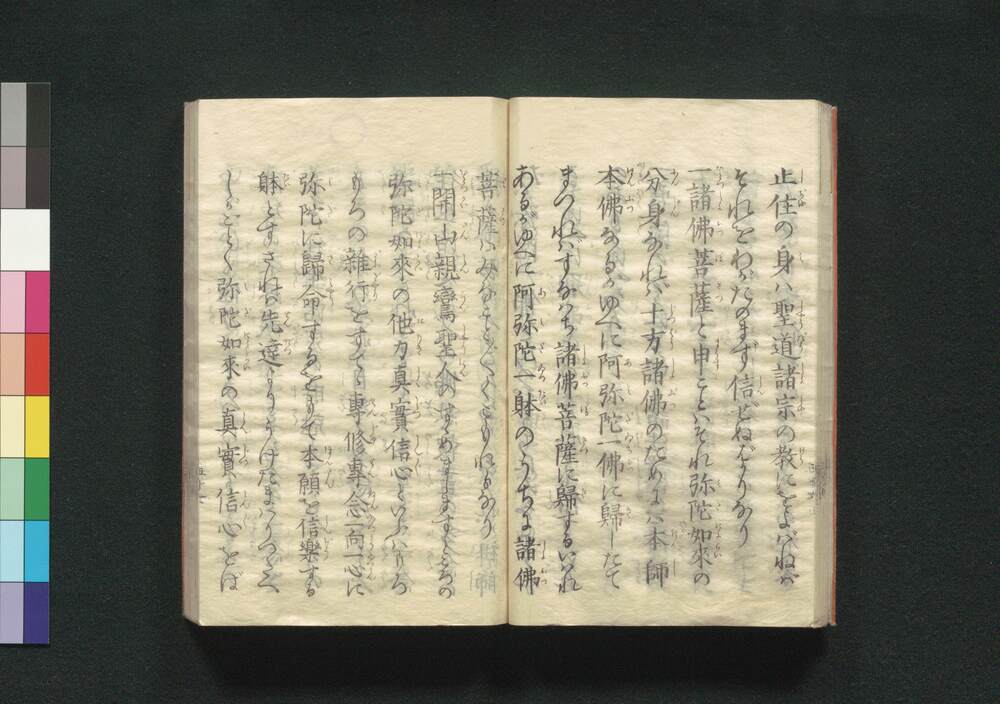 止住の身ハ聖道諸宗の教にをよハねハ
それをわかたのます信せねはかりなり
一諸佛菩薩と申ことハそれ弥陀如來の
分身なれハ十方諸佛のためにハ本師
本佛なるかゆへに阿弥陀一佛に歸したて
まつれハすなハち諸佛菩薩に歸するいハれ
あるかゆへに阿弥陀一躰のうちに諸佛
菩薩ハみなこと〱くこもれるなり
一開山親鸞聖人のすゝめましますところの
弥陀如來の他力真實信心といふハもろ
もろの雜行をすてゝ專修專念一向一心に
弥陀に歸命するをもて本願を信樂する
躰とすされハ先達よりうけたまハりつたへ
しかことく弥陀如來の真實信心をは